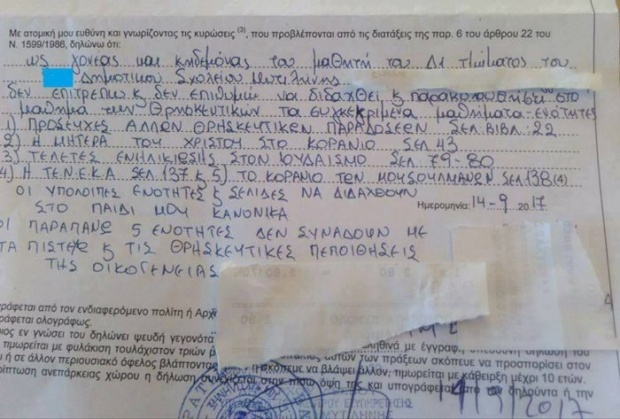 Με ατομική μου ευθύνη και γνωρίζοντας τις κυρώσεις (3), που προβλέπονται από τις διατάξεις της παρ. 6 του άρθρου 22 του
Ν. 1599/1986, δηλώνω ότι:
ως γονέας και κηδεμόνας του μαθητή του Δ1 τμήματος του
Δημοτικού Σχολείου Μυτιλήνης
δεν επιτρέπω κ δεν επιθυμώ να διδαχθεί ς παρακολουθήσει στο
μάθημα των Θρησκευτικών τα συγκεκριμένα μαθήματα-ενότητες
1) ΠΡΟΣΕΥΧΕΣ ΑΛΛΩΝ ΘΡΗΣΚΕΥΤΙΚΩΝ ΠΑΡΑΔΟΣΕΩΝ ΣΕΛ. ΒΙΒΛ: 22
2) Η ΜΗΤΕΡΑ ΤΟΥ ΧΡΙΣΤΟΥ ΣΤΟ ΚΟΡΑΝΙΟ ΣΕΛ 43
3) ΤΕΛΕΤΕΣ ΕΝΗΛΙΚΙΩΣΗΣ ΣΤΟΝ ΙΟΥΔΑΙΣΜΟ ΣΕΛ 79-80
4) Η ΤΕ.Ν.Ε.Κ.Α ΣΕΛ. 137 κ 5) ΤΟ ΚΟΡΑΝΙΟ ΤΩΝ ΜΟΥΣΟΥΛΜΑΝΩΝ ΣΕΛ 138(4)
ΟΙ ΥΠΟΛΟΙΠΕΣ ΕΝΟΤΗΤΕΣ ς ΣΕΛΙΔΕΣ ΝΑ ΔΙΔΑΧΘΟΥΝ
ΣΤΟ ΠΑΙΔΙ ΜΟΥ ΚΑΝΟΝΙΚΑ
Ημερομηνία: 14-9 2017
ΟΙ ΠΑΡΑΠΑΝΩ 5 ΕΝΟΤΗΤΕΣ ΔΕΝ ΣΥΝΑΔΟΥΝ ΜΕ
ΤΑ ΠΙΣΤΕΥΩ ς ΤΙΣ ΘΡΗΣΚΕΥΤΙΚΕΣ ΠΕΠΟΙΘΗΣΕΙΣ
ΤΗΣ ΟΙΚΟΓΕΝΕΙΑΣ
γράφεται από τον ενδιαφερόμενο πολίτη ή Αρχή
γράφεται ολογράφως.
ος εν γνώσει του δηλώνει ψευδή γεγονότα
τιμωρείται με φυλάκιση τουλάχιστον τριών
ή σε άλλον περιουσιακό όφελος βλάπτοντας
αυτών των πράξεων σκόπευε να προσπορίσει στον
σκόπευε να βλάψει άλλον, τιμωρείται με κάθειρξη μέχρι 10 ετών.
ρίπτωση ανεπάρκειας χώρου η δήλωση συνεχίζεται στην πίσω όψη της και υπογράφεται από τον δηλούντα ή την